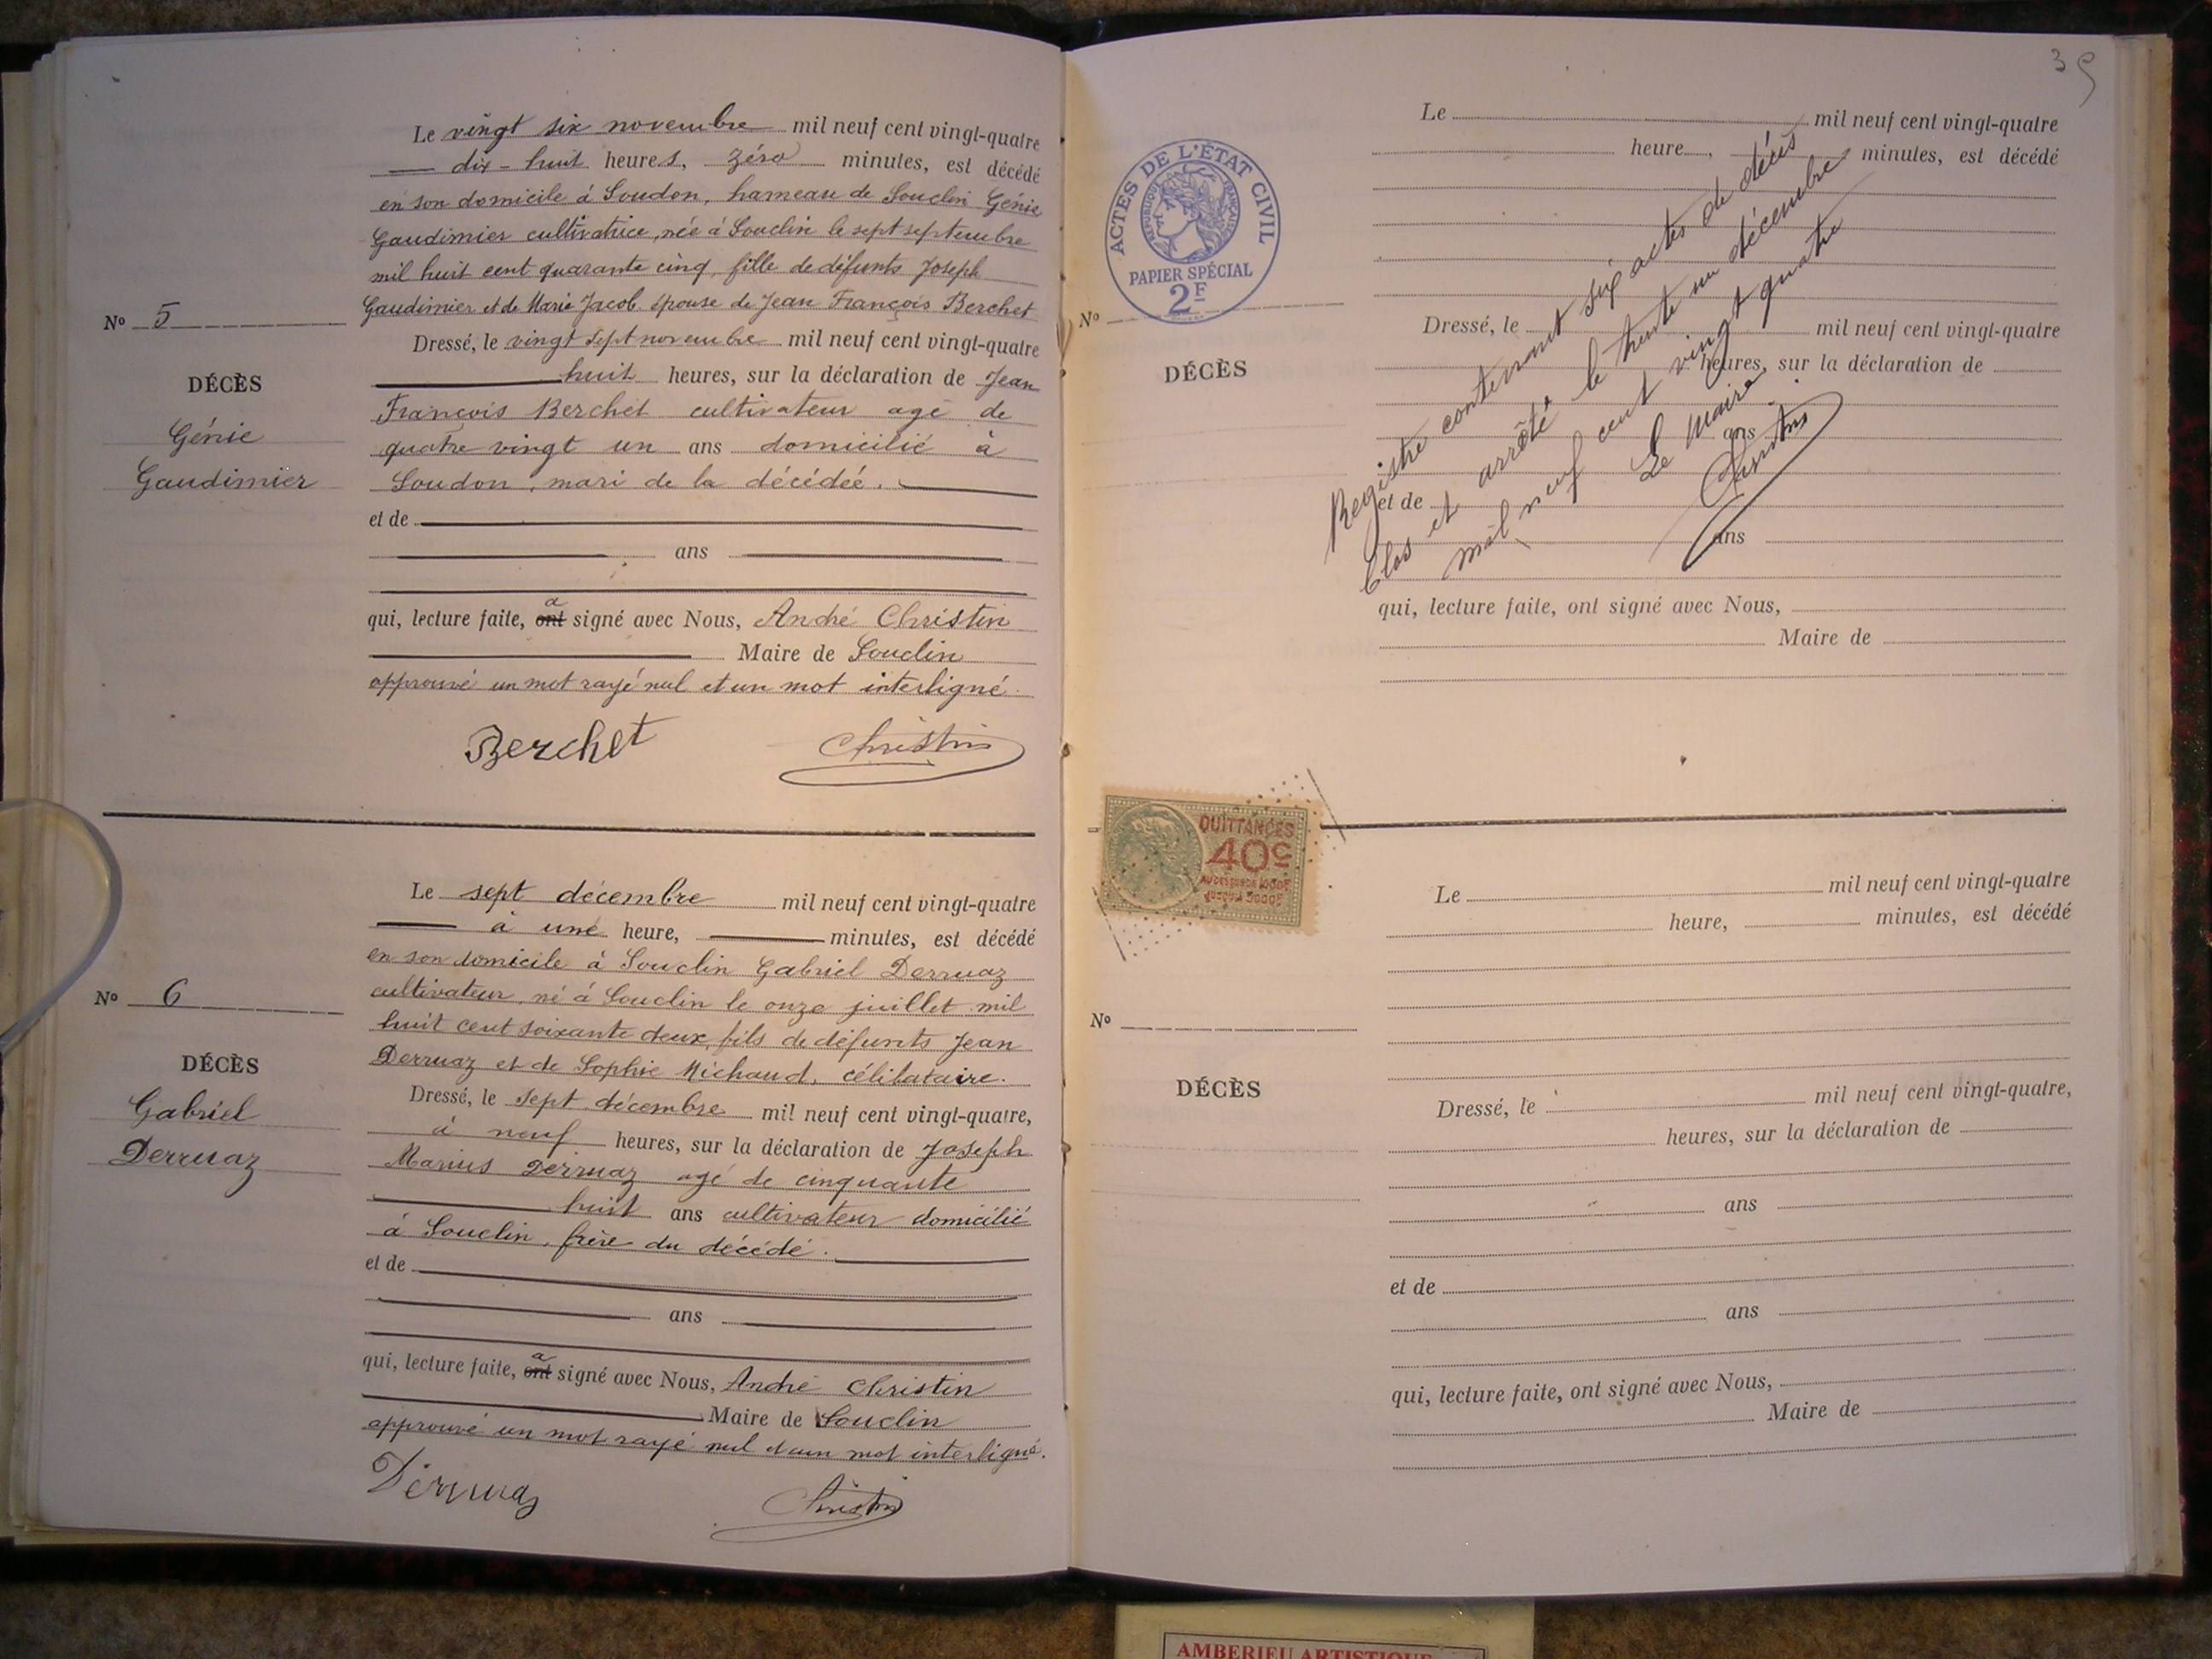 Le vingt six novembre mil neuf cent vingt-quatre
dix-huit heures, zéro minutes, est décédé
en son domicile à Soudon, hameau de Souclin Génie
Gaudimier cultivatrice, née à Souclin le sept septembre
mil huit cent quarante cinq, fille de défunts Joseph
Gaudimier et de Marie Jacob épouse de Jean François Berchet
No 5
Dressé, le vingt sept novembre mil neuf cent vingt-quatre
huit heures, sur la déclaration de Jean
DÉCÈS
Génie
Gaudimier
François Berchet cultivateur agé de
quatre vingt un ans domicilié à
Soudon, mari de la décédée.
et de
ans
a
qui, lecture faite, ont signé avec Nous, André Christin
Maire de Souclin
approuvé un mot rayé nul et un mot interligné.
Berchet Christin
Le sept décembre mil neuf cent vingt-quatre
à une heure, minutes, est décédé
en son domicile à Souclin Gabriel Derruaz
cultivateur, né à Souclin le onze juillet mil
huit cent soixante deux, fils de défunts Jean
Derruaz et de Sophie Michaud, célibataire.
No 6
DÉCÈS
Gabriel
Derruaz
Dressé, le sept décembre mil neuf cent vingt-quatre,
à neuf heures, sur la déclaration de Joseph
Marius Derruaz agé de cinquante
huit ans cultivateur domicilié
à Souclin, frère du décédé.
et de
ans
a
qui, lecture faite, ont signé avec Nous, André Christin
Maire de Souclin
approuvé un mot rayé nul et un mot interligné.
Derruaz Christin
39
ACTES DE L'ÉTAT CIVIL
RÉPUBLIQUE FRANÇAISE
PAPIER SPÉCIAL
2F
Le mil neuf cent vingt-quatre
heure, minutes, est décédé
No
DÉCÈS
Dressé, le mil neuf cent vingt-quatre
heures, sur la déclaration de
ans
et de
ans
qui, lecture faite, ont signé avec Nous,
Maire de
Registre contenant six actes de décès
Clos et arrêté le trente un décembre
mil neuf cent vingt quatre
Le Maire
Christin
QUITTANCES
40c
AU DESSUS DE 1000F
JUSQU'A 3000F
Le mil neuf cent vingt-quatre
heure, minutes, est décédé
No
DÉCÈS
Dressé, le mil neuf cent vingt-quatre,
heures, sur la déclaration de
ans
et de
ans
qui, lecture faite, ont signé avec Nous,
Maire de
AMBERIEU ARTISTIQUE